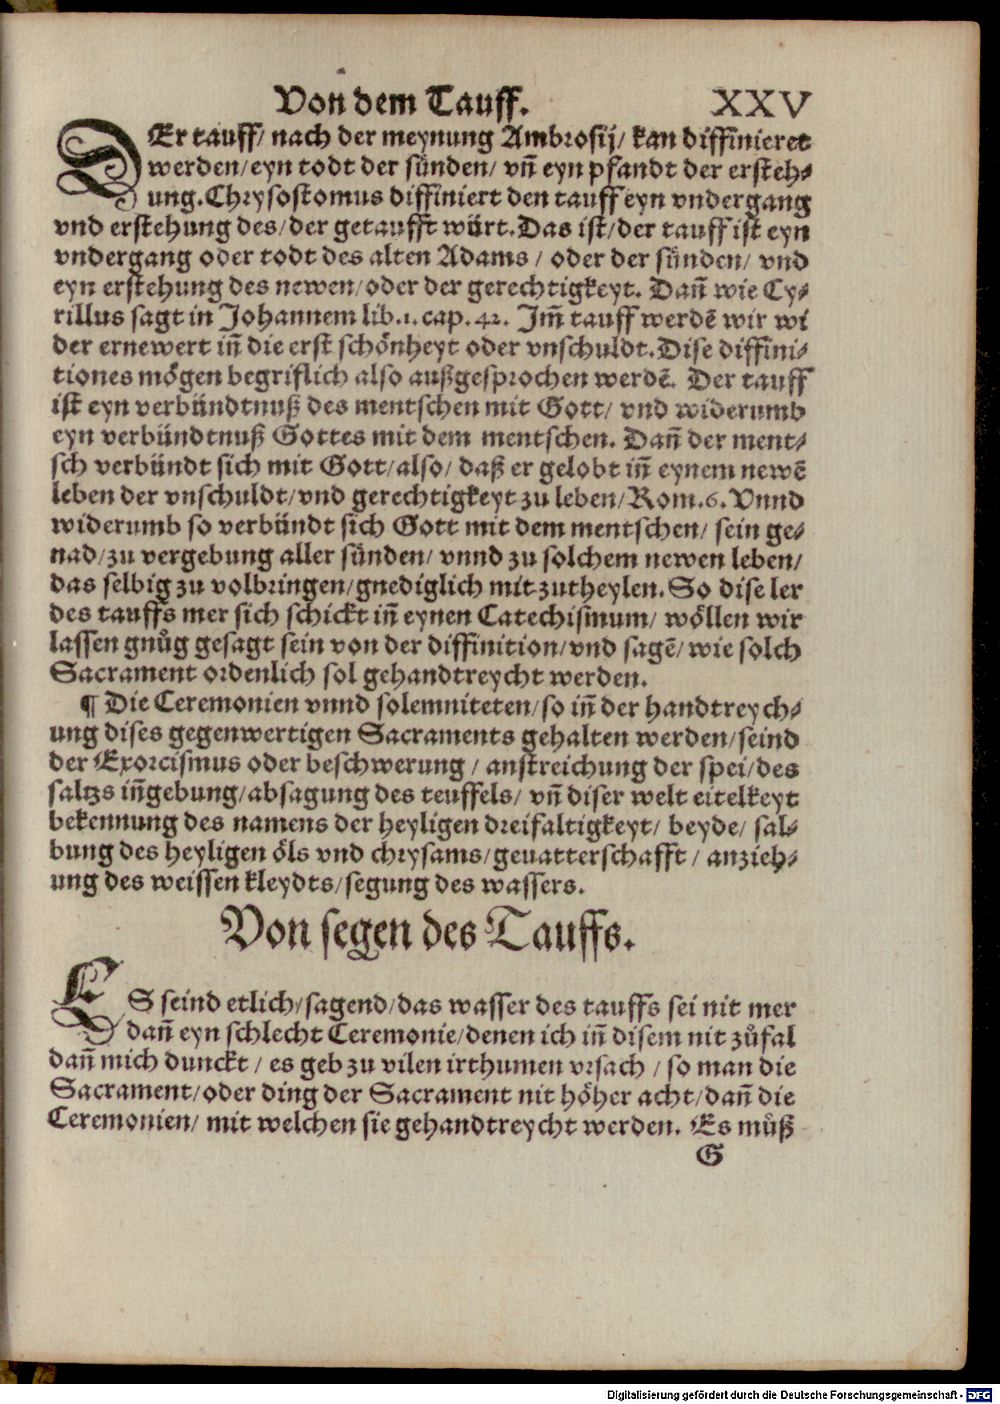 Von dem Tauff. XXV
DEr tauff/ nach der meynung Ambrosij/ kan diffinieret
werden/ eyn todt der sünden/ vñ eyn pfandt der ersteh-
ung. Chrysostomus diffiniert den tauff eyn vndergang
vnd erstehung des/ der getaufft würt. Das ist/ der tauff ist eyn
vndergang oder todt des alten Adams / oder der sünden/ vnd
eyn erstehung des newen/ oder der gerechtigkeyt. Dañ wie Cy-
rillus sagt in Johannem lib.1. cap.42. Im̃ tauff werdẽ wir wi
der ernewert iñ die erst schönheyt oder vnschuldt. Dise diffini-
tiones mögen begriflich also außgesprochen werdẽ. Der tauff
ist eyn verbündtnuß des mentschen mit Gott/ vnd widerumb
eyn verbündtnuß Gottes mit dem mentschen. Dañ der ment-
sch verbündt sich mit Gott/ also/ daß er gelobt iñ eynem newẽ
leben der vnschuldt/ vnd gerechtigkeyt zu leben/ Rom.6. Vnnd
widerumb so verbündt sich Gott mit dem mentschen/ sein ge-
nad/ zu vergebung aller sünden/ vnnd zu solchem newen leben/
das selbig zu volbringen/ gnediglich mit zutheylen. So dise ler
des tauffs mer sich schickt iñ eynen Catechismum/ wöllen wir
lassen gnůg gesagt sein von der diffinition/ vnd sagẽ/ wie solch
Sacrament ordenlich sol gehandtreycht werden.
¶ Die Ceremonien vnnd solemniteten/ so iñ der handtreych-
ung dises gegenwertigen Sacraments gehalten werden/ seind
der Exorcismus oder beschwerung / anstreichung der spei/ des
saltzs iñgebung/ absagung des teuffels/ vñ diser welt eitelkeyt
bekennung des namens der heyligen dreifaltigkeyt/ beyde/ sal-
bung des heyligen öls vnd chrysams/ geuatterschafft / anzieh-
ung des weissen kleydts/ segung des wassers.
Von segen des Tauffs.
ES seind etlich/ sagend/ das wasser des tauffs sei nit mer
dañ eyn schlecht Ceremonie/ denen ich iñ disem nit zůfal
dañ mich dunckt / es geb zu vilen irthumen vrsach / so man die
Sacrament/ oder ding der Sacrament nit höher acht/ dañ die
Ceremonien/ mit welchen sie gehandtreycht werden. Es můß
G
Digitalisierung gefördert durch die Deutsche Forschungsgemeinschaft - DFG